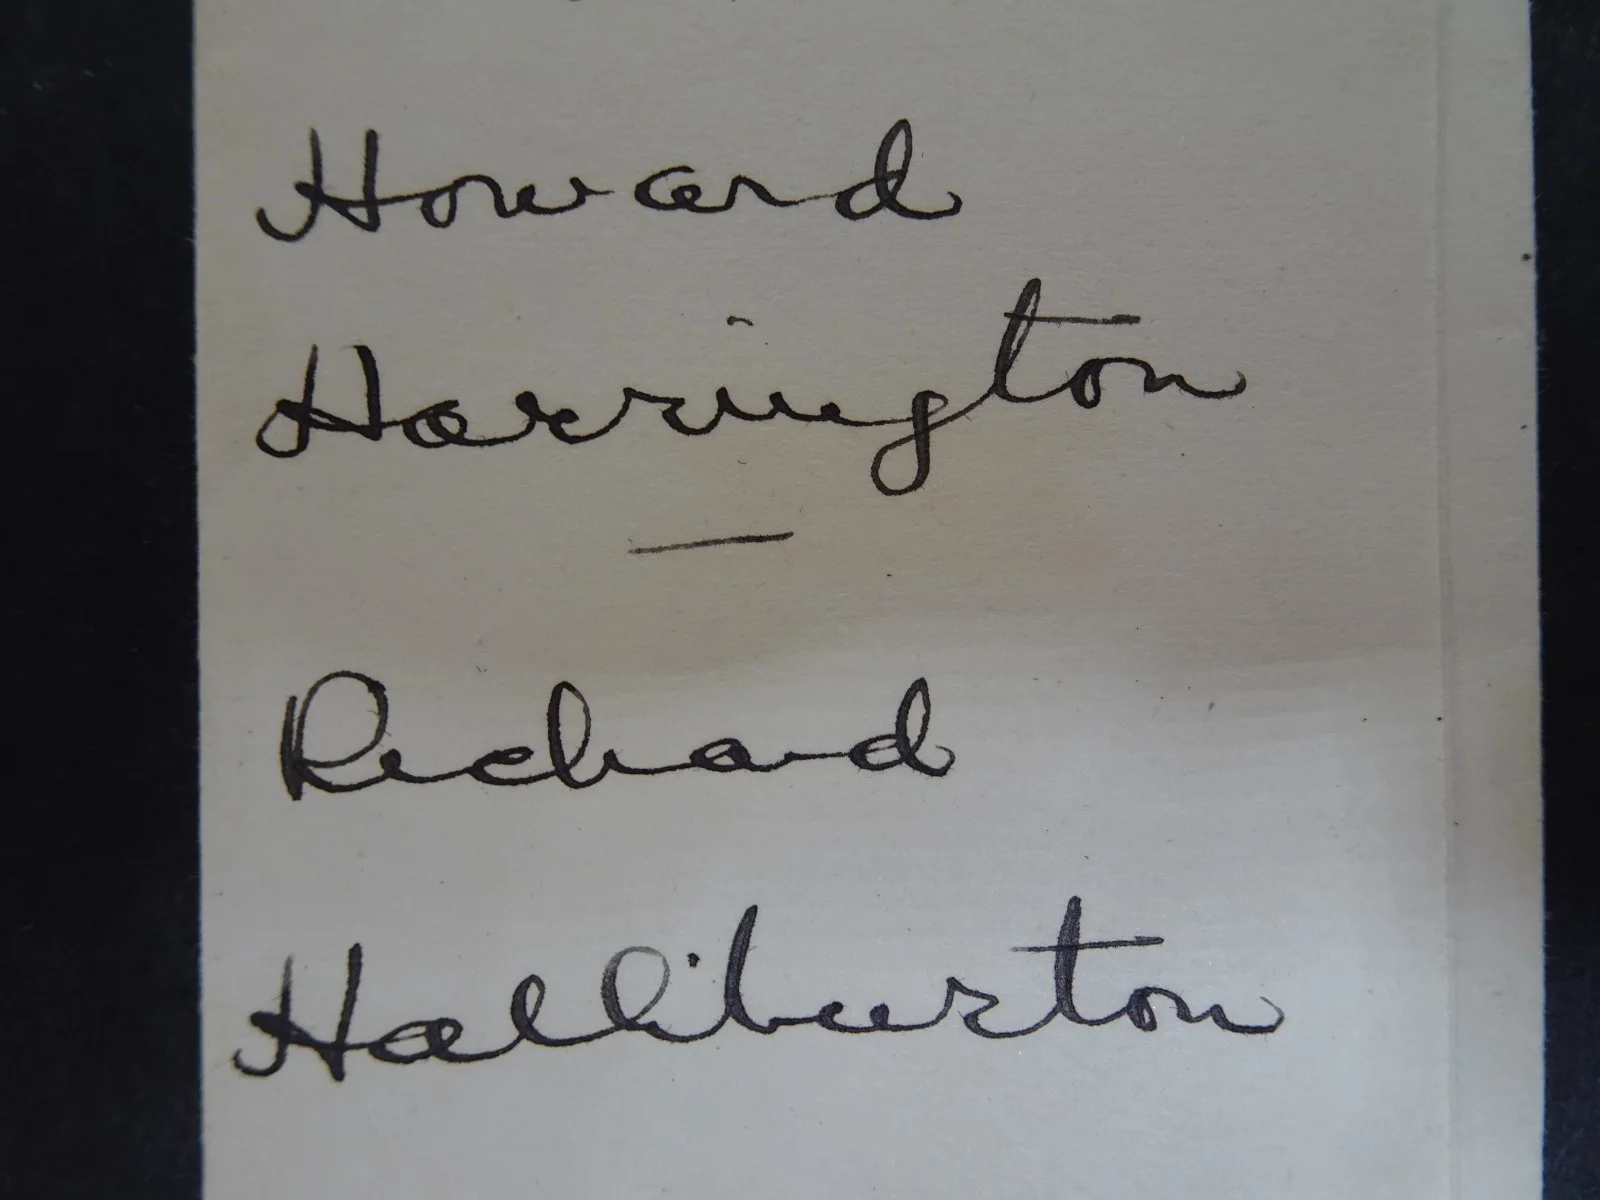 Howard
Harrington
—
Richard
Halliburton